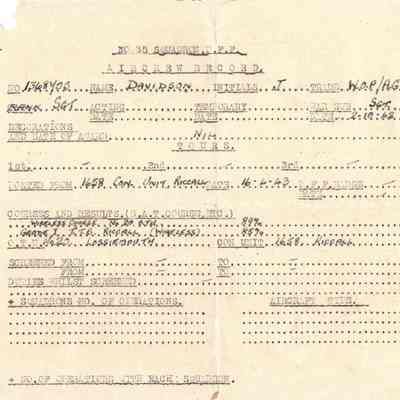 NO 35 SQUADRON P.F.F.
AIRCREW RECORD.
NO 1348402 NAME DAVIDSON INITIALS J TRADE W.OP/AG
RANK SGT ACTING TEMPORARY WAR SUB. Sgt
DATE DATE DATE 2-10-42
DECORATIONS
AND DATE OF AWARD. NIL
TOURS.
1st. — 2nd — 3rd —
POSTED FROM 1658 CON. UNIT, RICCALL DATE 16-4-43 P.F.F. BADGE —
COURSES AND RESULTS. (N.A.T. COURSE, ETC.)
89%
RICCALL (WIRELESS) 85%
O.T.U. LOSSIEMOUTH CON UNIT 1658. RICCALL
SCREENED FROM — TO —
FROM — TO —
DUTIES WHILST SCREENED —
+ SQUADRONS NO. OF OPERATIONS. AIRCRAFT
+ NO. OF OPERATIONS WITH EACH SQUADRON.